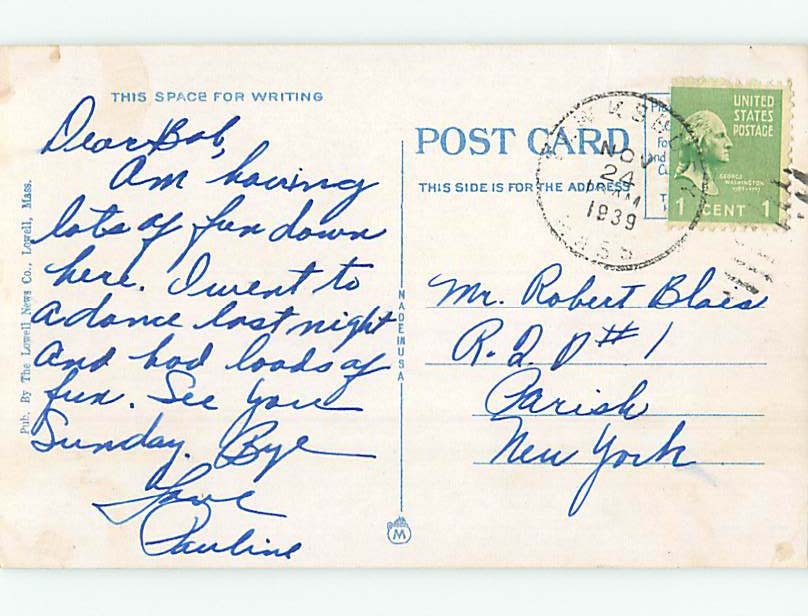 THIS SPACE FOR WRITING
Dear Bob,
Am having
lots of fun down
here. I went to
a dance last night
and had loads of
fun. See you
Sunday. Bye
Love
Pauline
Pub. By The Lowell News Co., Lowell, Mass.
MADE IN USA
M
POST CARD
THIS SIDE IS FOR THE ADDRESS
NOV
24
AM
1939
MASS
UNITED
STATES
POSTAGE
GEORGE
WASHINGTON
1 CENT 1
Mr. Robert Blais
R. F. D # 1
Parish
New York